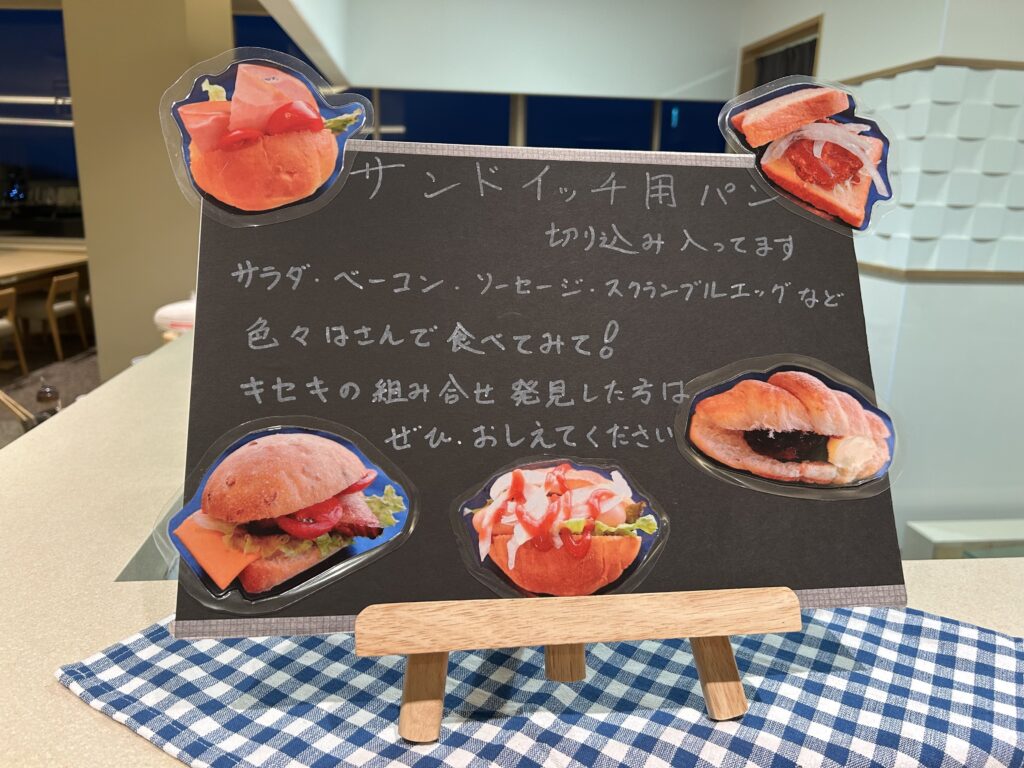 サンドイッチ用パン
切り込み入ってます
サラダ・ベーコン・ソーセージ・スクランブルエッグなど
色々はさんで食べてみて!
キセキの組み合せ発見した方は
ぜひ・おしえてください